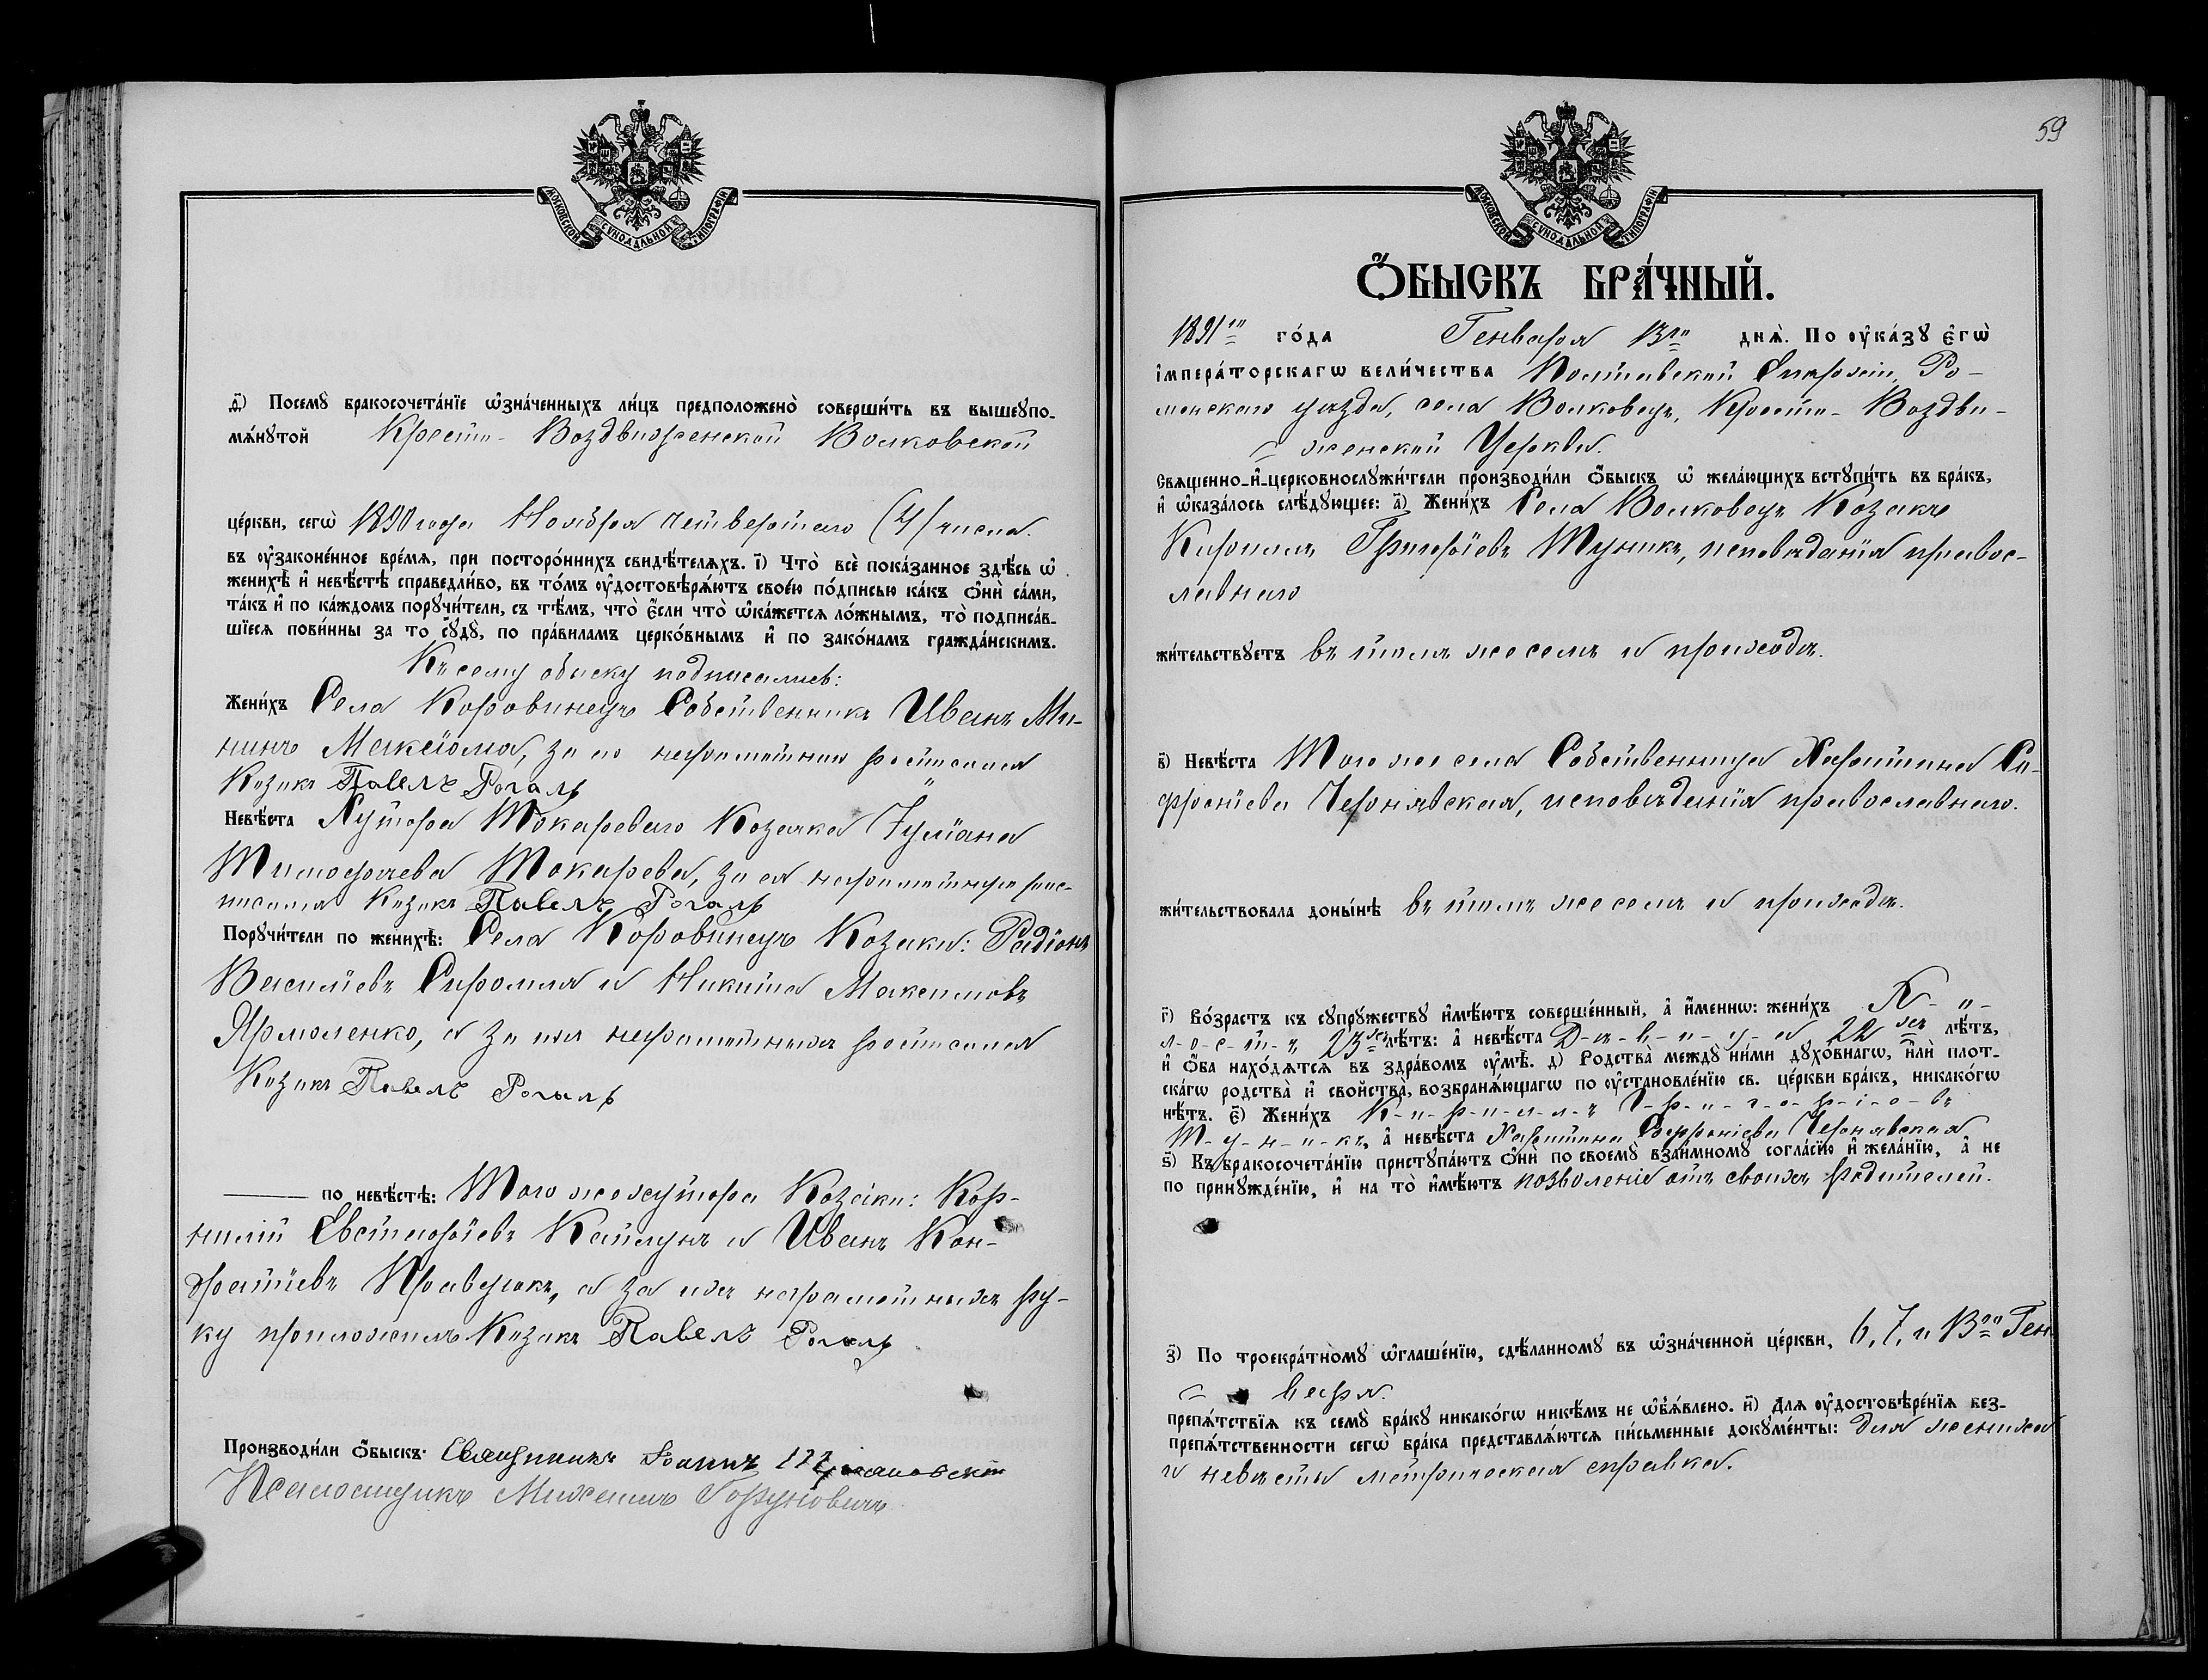 МОСКОВСКОЙ СУНОДАЛЬНОЙ ТИПОГРАФІИ
д҃) Посемꙋ бракосочета́нїе ѡ҆зна́ченныхъ ли́цъ предположено̀ соверши́ть въ вышеꙋпо-
мѧ́нꙋтой Кресто-Воздвиженской Волковской
це́ркви, сегѡ̀ 1890 года Ноября четвертаго (4) числа.
въ ᲂу҆законе́нное вре́мѧ, при посторо́ннихъ свидѣ́телѧхъ. і҃) Что̀ всѐ пока́занное здѣ́сь ѡ҆
женихѣ̀ и҆ невѣ́стѣ справедли́во, въ то́мъ ᲂу҆достовѣрѧ́ютъ свое́ю по́дписью ка́къ ѻ҆нѝ са́ми,
та́къ и҆ по ка́ждомъ порꙋчи́тели, съ тѣ́мъ, что̀ є҆́сли что̀ ѡ҆ка́жетсѧ ло́жнымъ, то̀ подписа́в-
шїесѧ пови́нны за то сꙋдꙋ̀, по пра́виламъ церко́внымъ и҆ по зако́намъ гражда́нскимъ.
Къ сему обыску подписались:
Жени́хъ Села Коровинецъ Собственникъ Иванъ Ми-
нинъ Максіома, за но неграмотнаго росписался
Козакъ Павелъ Рогаль
Невѣ́ста Хутора Токарева Козачка Іуліана
Тимофеева Токарева, за ея неграмотную рос-
писался Козакъ Павелъ Рогаль
Порꙋчи́тели по женихѣ̀: Села Коровинецъ Козаки: Радіонъ
Василіевъ Сиромля и Никита Максимовъ
Ярмоленко, а за ихъ неграмотныхъ росписался
Козакъ Павелъ Рогаль
по невѣ́стѣ: Того же хутора Козаки: Кор-
нилій Евстафіевъ Кайлунъ и Иванъ Кон-
дратіевъ Правдюкъ, а за ихъ неграмотныхъ ру-
ку приложилъ Козакъ Павелъ Рогаль
Производи́ли ѻ҆́быскъ: Священникъ Іоаннъ
Псаломщикъ Михаилъ
59
МОСКОВСКОЙ СУНОДАЛЬНОЙ ТИПОГРАФІИ
Ѻ҆́БЫСКЪ БРА́ЧНЫЙ.
1891го го́да Генваря 13го днѧ̀. По ᲂу҆ка́зꙋ є҆гѡ̀
і҆мпера́торскагѡ вели́чества Полтавской Епархіи, Ро-
менскаго уезда, села Волковецъ, Кресто-Воздви-
женской Церкви.
Свѧщенно-и҆-церковнослꙋжи́тели производи́ли ѻ҆́быскъ ѡ҆ жела́ющихъ встꙋпи́ть въ бра́къ,
и҆ ѡ҆каза́лось слѣ́дꙋющее: а҃) Жени́хъ Села Волковецъ Козакъ
Кириллъ Григоріевъ Туникъ, исповеданія правос-
лавнаго
жи́тельствꙋетъ въ томъ же селе и приходе.
в҃) Невѣ́ста Того же села Собственница Харитина Со-
фроніева Чернявская, исповеданія православнаго.
жи́тельствовала доны́нѣ въ томъ же селе и приходе.
г҃) Во́зрастъ къ сꙋпрꙋ́жествꙋ и҆мѣ́ютъ соверше́нный, а҆ и҆́меннѡ: жени́хъ Х-о-
л-о-с-т-ъ 23хъ лѣ́тъ: а҆ невѣ́ста Д-е-в-и-ц-а 22хъ лѣ́тъ,
и҆ ѻ҆́ба нахо́дѧтсѧ въ здра́вомъ ᲂу҆мѣ̀. д҃) Родства̀ междꙋ̀ ни́ми дꙋхо́внагѡ, и҆лѝ плот-
ска́гѡ родства̀ и҆ свойства̀, возбранѧ́ющагѡ по ᲂу҆становле́нїю св. це́ркви бра́къ, никако́гѡ
нѣ́тъ. є҃) Жени́хъ К-и-р-и-л-л-ъ Г-р-и-г-о-р-і-е-въ
Т-у-н-и-къ, а҆ невѣ́ста Харитина Софроніева Чернявская
ѕ҃) Къ бракосочета́нїю пристꙋпа́ютъ ѻ҆нѝ по своемꙋ̀ взаи́мномꙋ согла́сїю и҆ жела́нїю, а҆ не
по принꙋжде́нїю, и҆ на то̀ и҆мѣ́ютъ позволеніе отъ своихъ родителей.
з҃) По троекра́тномꙋ ѡ҆глаше́нїю, сдѣ́ланномꙋ въ ѡ҆зна́ченной це́ркви, 6, 7, и 13го Ген-
варя.
препѧ́тствїѧ къ семꙋ̀ бра́кꙋ никако́гѡ никѣ́мъ не ѡ҆б̾ѧ́влено. и҃) Длѧ ᲂу҆достовѣре́нїѧ без-
препѧ́тственности сегѡ̀ бра́ка представлѧ́ютсѧ пи́сьменные докꙋме́нты: для жениха
и невесты метрическая справка.